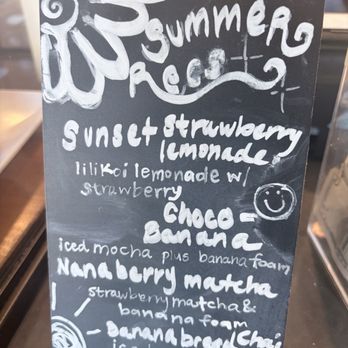 summer
Recs
Sunset Strawberry
lemonade
lilikoi lemonade w/
strawberry
Choco-
Banana
iced mocha plus banana foam
Nanaberry matcha
strawberry matcha &
banana foam
Bananabread Chai